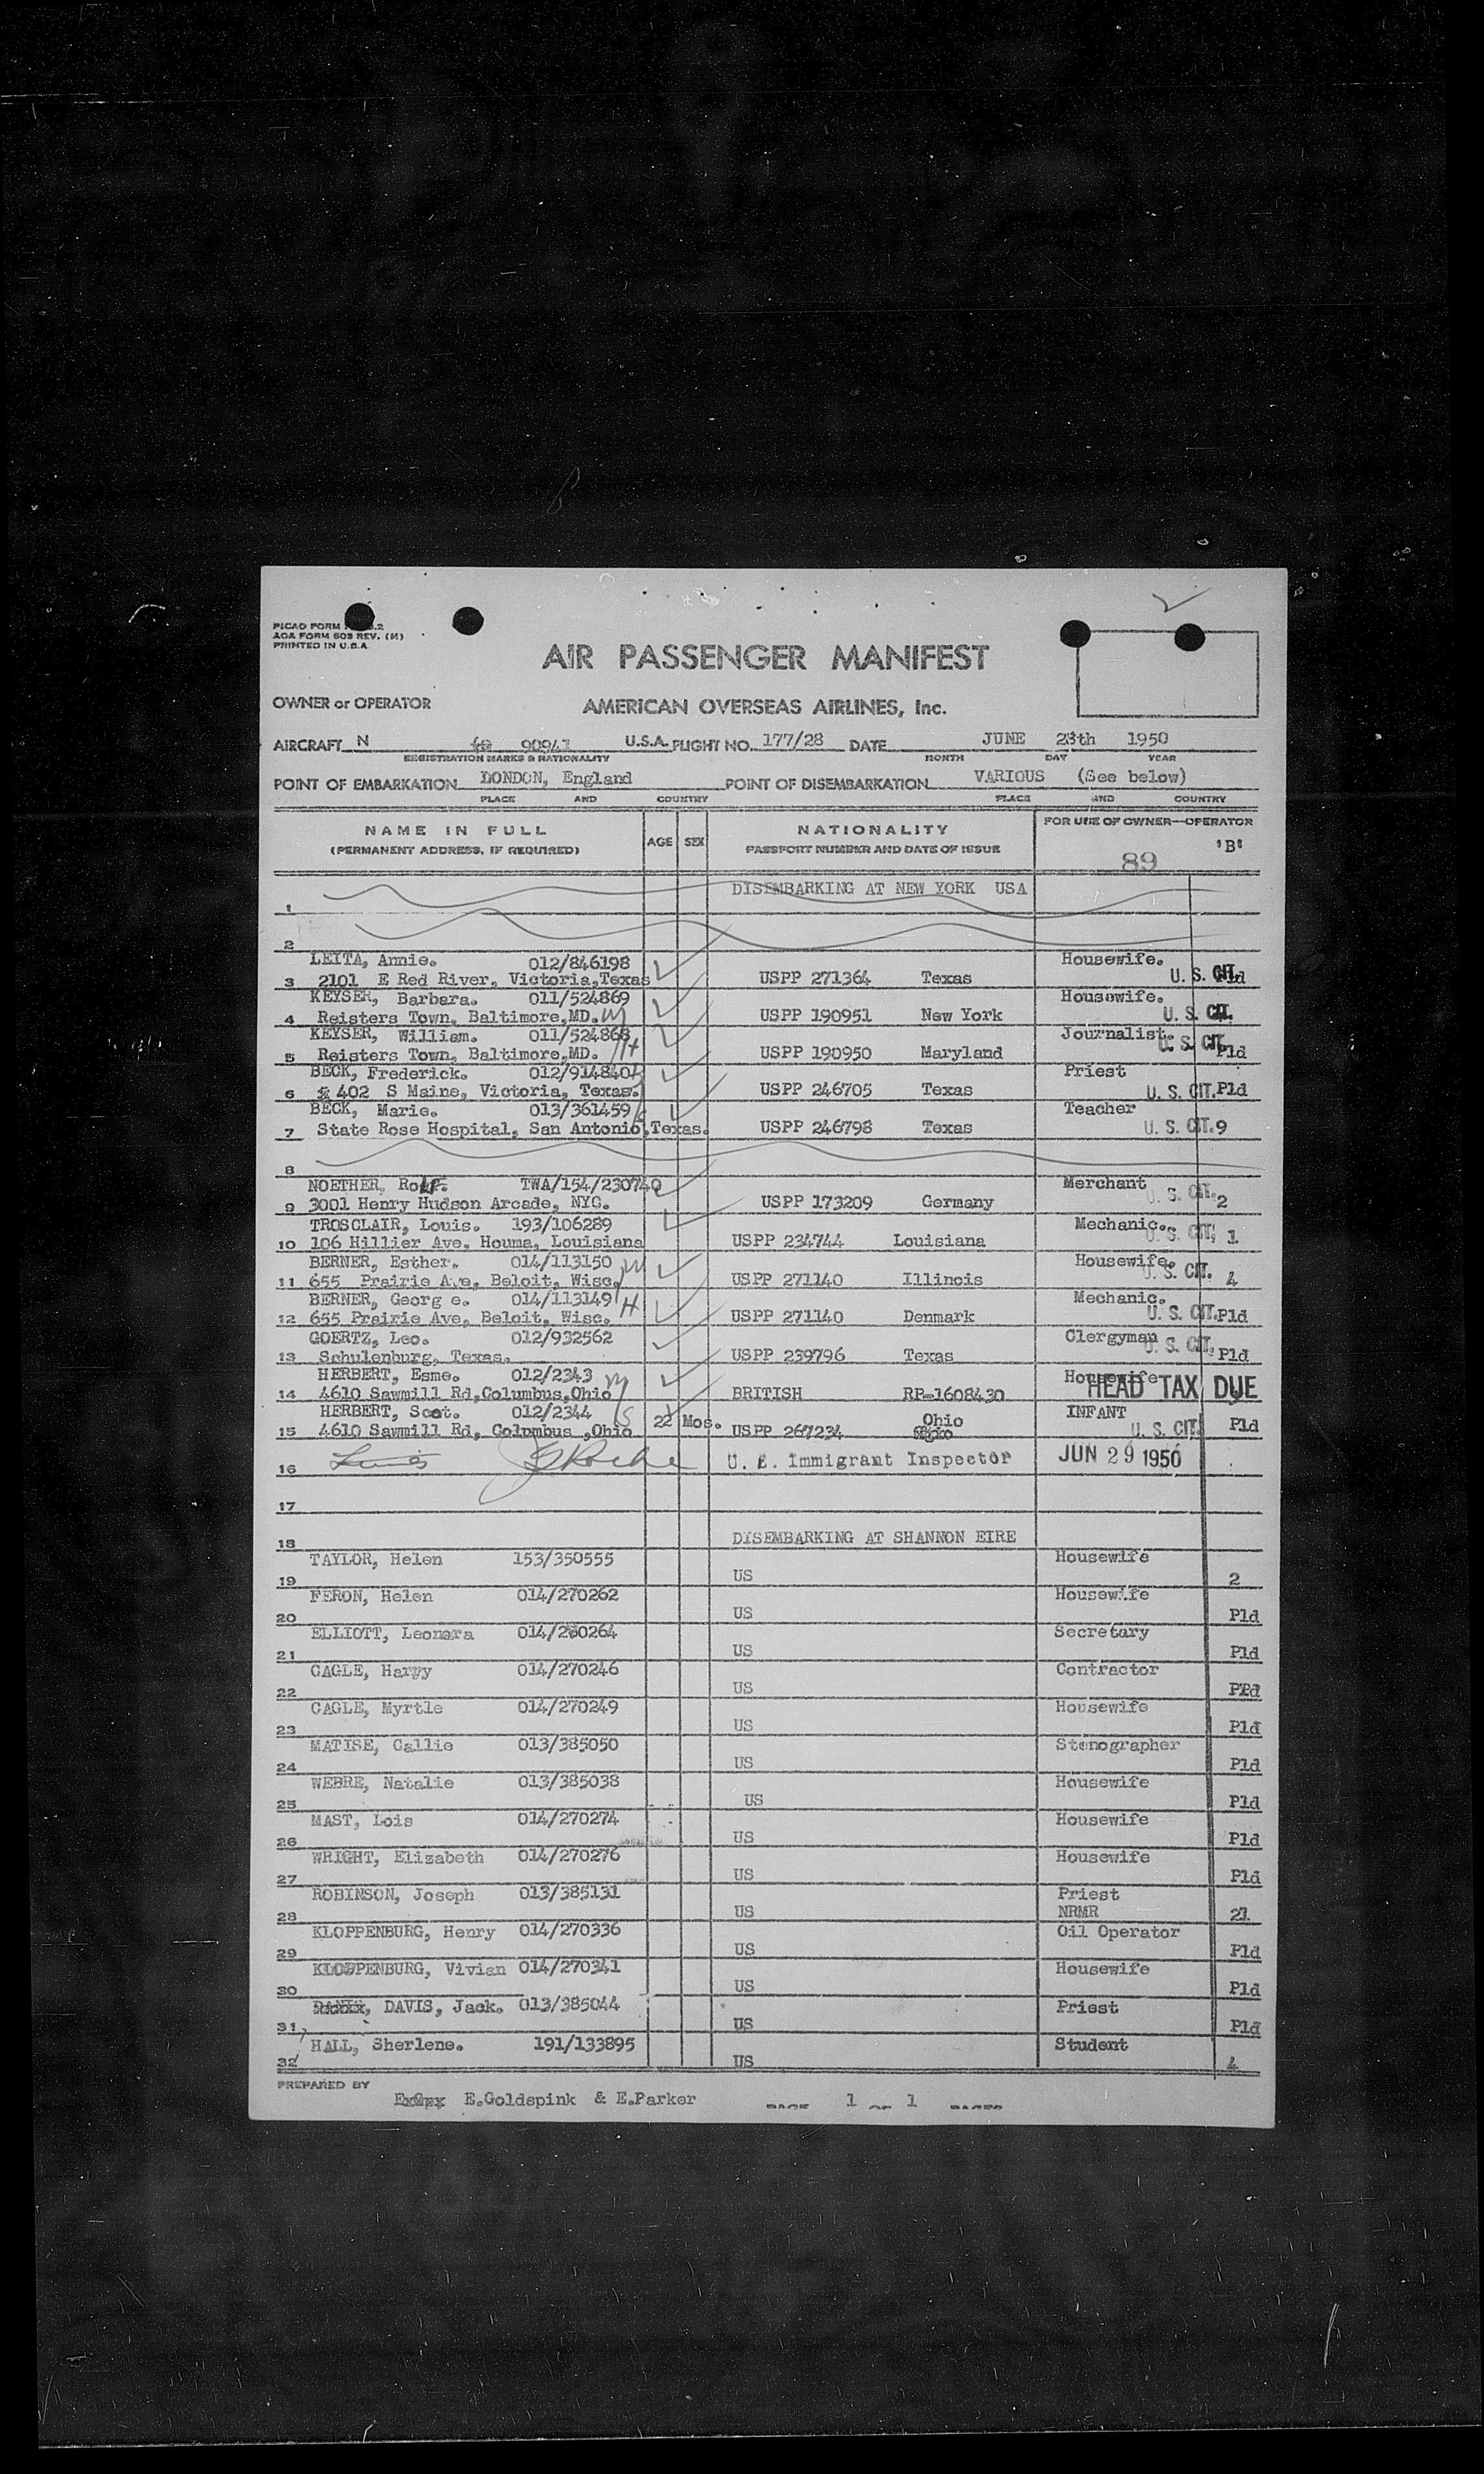 PICAO FORM
AOA FORM 603 REV. (M)
PRINTED IN U.S.A.
AIR PASSENGER MANIFEST
OWNER or OPERATOR AMERICAN OVERSEAS AIRLINES, Inc.
AIRCRAFT N 90941 U.S.A. FLIGHT NO. 177/28 DATE JUNE 28th 1950
REGISTRATION MARKS & NATIONALITY MONTH DAY YEAR
POINT OF EMBARKATION LONDON, England POINT OF DISEMBARKATION VARIOUS (See below)
PLACE AND COUNTRY PLACE AND COUNTRY
NAME IN FULL
(PERMANENT ADDRESS, IF REQUIRED)
AGE SEX
NATIONALITY
PASSPORT NUMBER AND DATE OF ISSUE
FOR USE OF OWNER—OPERATOR
'B'
89
DISEMBARKING AT NEW YORK USA
1
2
LEITA, Annie. 012/846198 Housewife.
3 2101 E Red River, Victoria,Texas USPP 271364 Texas U. S. CIT. Pld
KEYSER, Barbara. 011/524869 Housewife.
4 Reisters Town, Baltimore,MD. USPP 190951 New York U. S. CIT.
KEYSER, William. 011/524868 Journalist.
5 Reisters Town, Baltimore,MD. H USPP 190950 Maryland U. S. CIT. Pld
BECK, Frederick. 012/914840 Priest
6 402 S Maine, Victoria, Texas. USPP 246705 Texas U. S. CIT. Pld
BECK, Marie. 013/361459 Teacher
7 State Rose Hospital, San Antonio,Texas. USPP 246798 Texas U. S. CIT. 9
8
NOETHER, Rolf. TWA/154/230740 Merchant
9 3001 Henry Hudson Arcade, NYC. USPP 173209 Germany U. S. CIT. 2
TROSCLAIR, Louis. 193/106289 Mechanic.
10 106 Hillier Ave, Houma, Louisiana USPP 234744 Louisiana U. S. CIT. 1
BERNER, Esther. 014/113150 Housewife.
11 655 Prairie Ave, Beloit, Wisc. USPP 271140 Illinois U. S. CIT. 4
BERNER, Georg e. 014/113149 H Mechanic.
12 655 Prairie Ave, Beloit, Wisc. USPP 271140 Denmark U. S. CIT. Pld
GOERTZ, Leo. 012/932562 Clergyman
13 Schulenburg, Texas. USPP 239796 Texas U. S. CIT. Pld
HERBERT, Esme. 012/2343 Housewife
14 4610 Sawmill Rd,Columbus,Ohio BRITISH RP-1608430 HEAD TAX DUE
HERBERT, Scot. 012/2344 22 Mos. Ohio INFANT
15 4610 Sawmill Rd, Columbus ,Ohio USPP 267234 U. S. CIT. Pld
16 U. S. Immigrant Inspector JUN 29 1950
17
18 DISEMBARKING AT SHANNON EIRE
TAYLOR, Helen 153/350555 Housewife
19 US 2
FERON, Helen 014/270262 Housewife
20 US Pld
ELLIOTT, Leonora Secretary
21 US Pld
CAGLE, Harry 014/270246 Contractor
22 US Pld
CAGLE, Myrtle 014/270249 Housewife
23 US Pld
MATISE, Callie 013/385050 Stenographer
24 US Pld
WEBRE, Natalie 013/385038 Housewife
25 US Pld
MAST, Lois 014/270274 Housewife
26 US Pld
WRIGHT, Elizabeth 014/270276 Housewife
27 US Pld
ROBINSON, Joseph 013/385131 Priest
28 US NRMR 21
KLOPPENBURG, Henry 014/270336 Oil Operator
29 US Pld
KLOPPENBURG, Vivian 014/270341 Housewife
30 US Pld
DAVIS, Jack. 013/385044 Priest
31 US Pld
HALL, Sherlene. 191/133895 Student
32 US 4
PREPARED BY
E.Goldspink & E.Parker PAGE 1 OF 1 PAGES